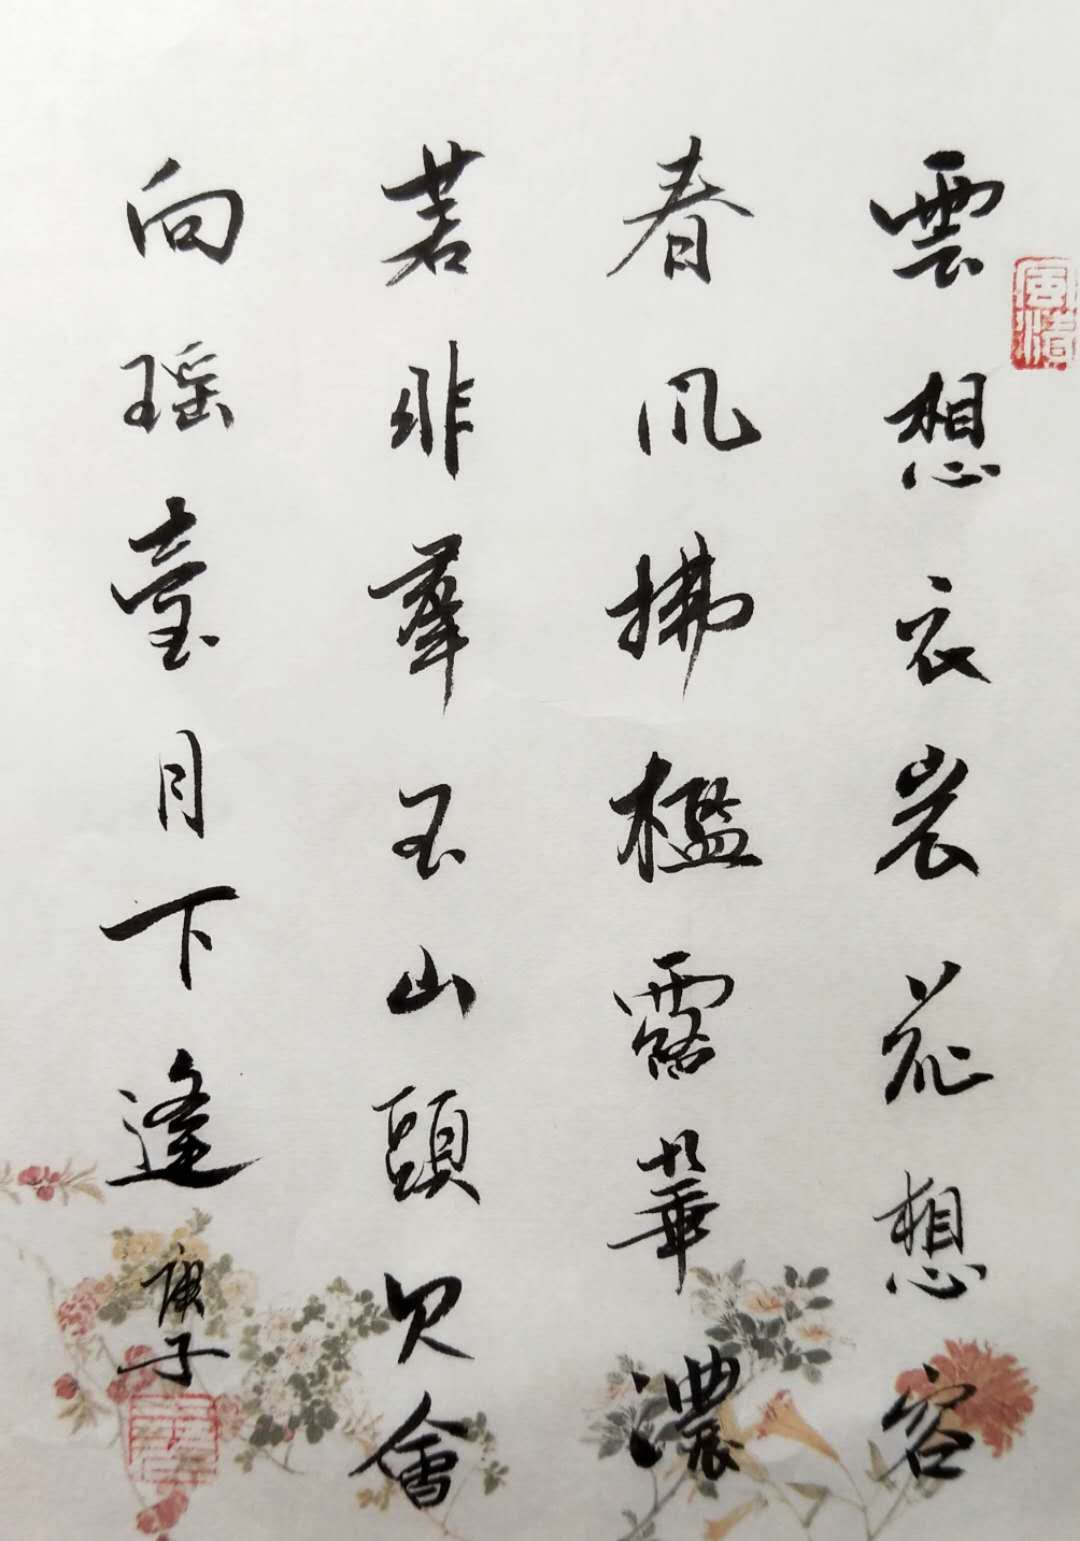 雲想衣裳花想容
春风拂檻露華濃
若非羣玉山頭见會
向瑶臺月下逢
庚子